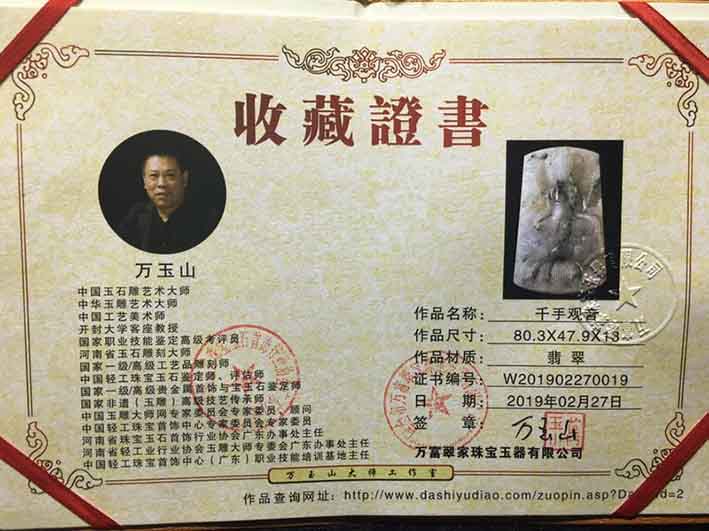 收藏證書
万玉山
中国玉石雕艺术大师
中华玉雕艺术大师
中国工艺美术师
开封大学客座教授
国家职业技能鉴定高级考评员
河南省玉石雕刻大师
国家一级/高级工艺品雕刻师
中国轻工珠宝玉石鉴定师、评估师
国家一级/高级贵金属首饰与宝玉石鉴定师
国家非遗（玉雕）高级技艺传承师
中国玉雕大师网专家委员会专家委员、顾问
中国轻工珠宝首饰中心专家委员会专家委员
河南省珠宝玉石首饰行业协会广东办事处主任
河南省轻工业行业协会玉雕大师专委会广东办事处主任
中国轻工珠宝首饰中心（广东）职业技能培训基地主任
作品名称：千手观音
作品尺寸：80.3X47.9X13
作品材质：翡翠
证书编号：W201902270019
日期：2019年02月27日
签章：万玉山
万富翠家珠宝玉器有限公司
万玉山大师工作室
作品查询网址：http://www.dashiyudiao.com/zuopin.asp?